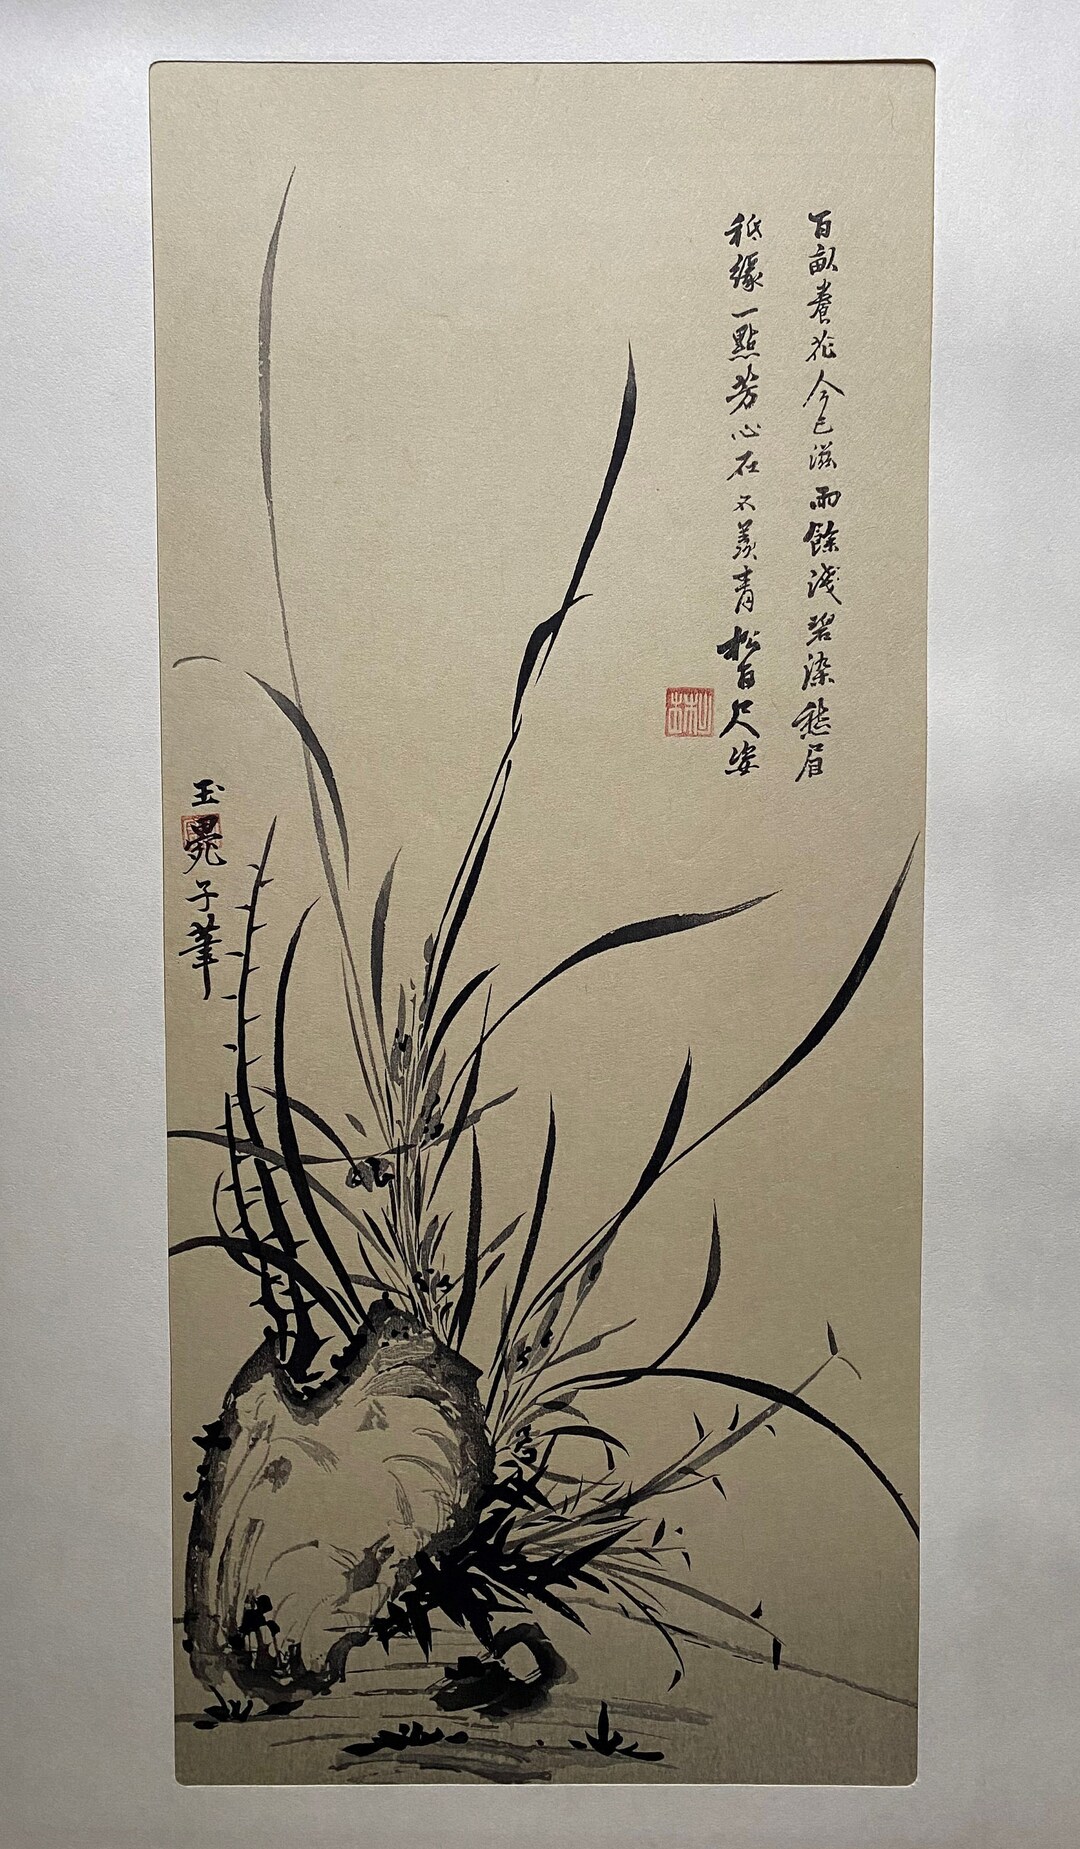 百畝養花今已滋雨餘淺碧染愁眉
秖緣一點芳心在不羨青松百尺姿
玉畹子筆